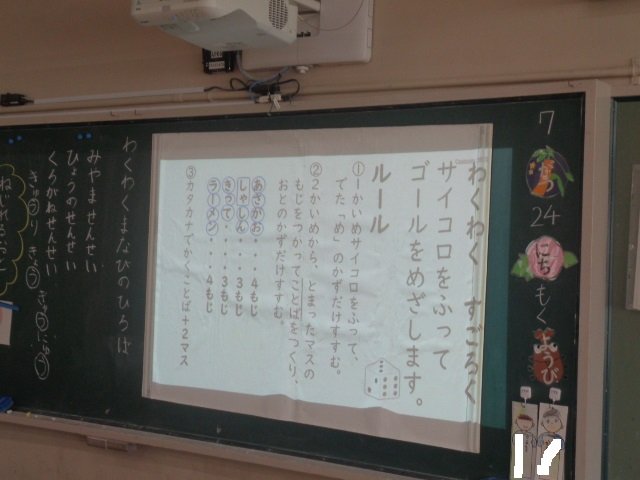 7がつ24にちもくようび
わくわく すごろく
サイコロをふって
ゴールをめざします。
ルール
①1かいめサイコロをふって、
でた「め」のかずだけすすむ。
②2かいめから、とまったマスの
もじをつかってことばをつくり、
おとのかずだけすすむ。
あさがお・・・・4もじ
しゃしん・・・・3もじ
きって・・・・3もじ
ラーメン・・・・4もじ
③カタカナでかくことば+2マス
わくわくまなびのひろば
みやませんせい
ひょうのせんせい
くらがねせんせい
きゅうり